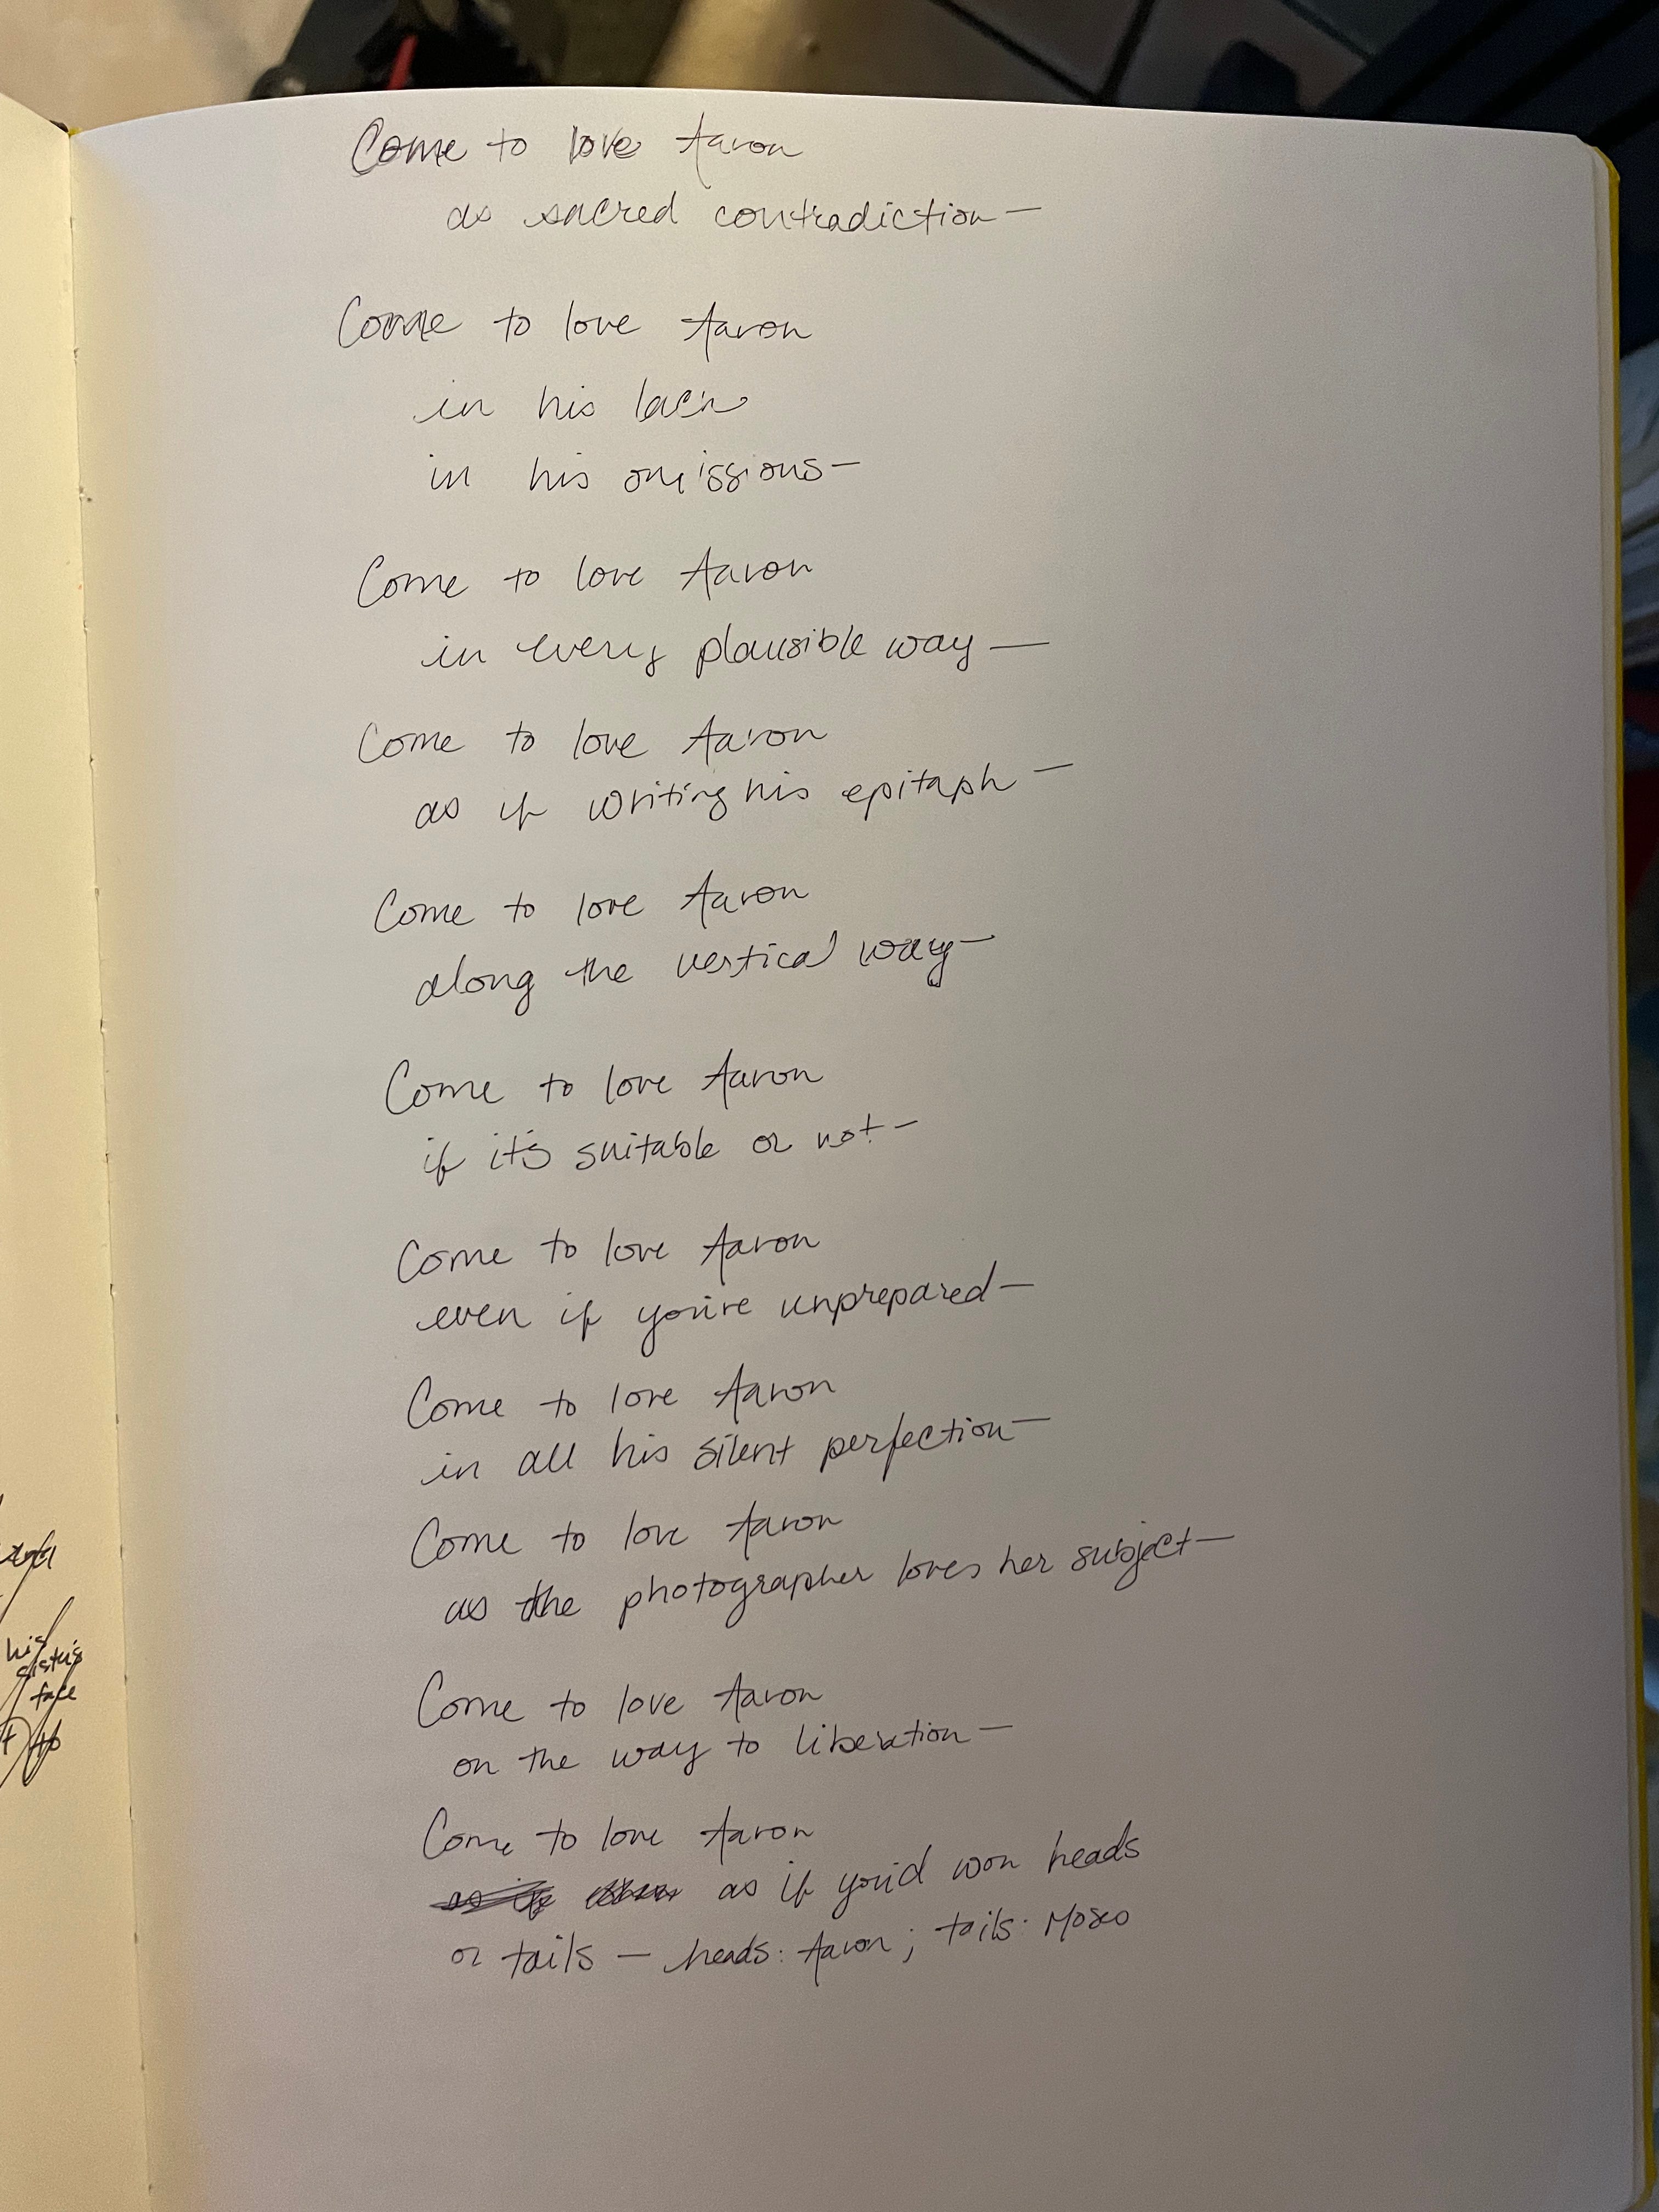 Come to love Aaron
as sacred contradiction—
Come to love Aaron
in his lack
in his omissions—
Come to love Aaron
in every plausible way—
Come to love Aaron
as if writing his epitaph—
Come to love Aaron
along the vertical way—
Come to love Aaron
if it's suitable or not—
Come to love Aaron
even if you're unprepared—
Come to love Aaron
in all his silent perfection—
Come to love Aaron
as the photographer loves her subject—
Come to love Aaron
on the way to liberation—
Come to love Aaron
as if you'd won heads
or tails — heads: Aaron; tails:
his
sister's
face